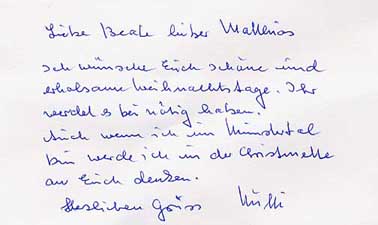 Liebe Beate lieber Matthias
Ich wünsche Euch schöne und
erholsame Weihnachtstage. Ihr
werdet es bei nötig haben.
Auch wenn ich im Münstertal
bin werde ich in der Christmette
an Euch denken.
Herzlichen Grüss